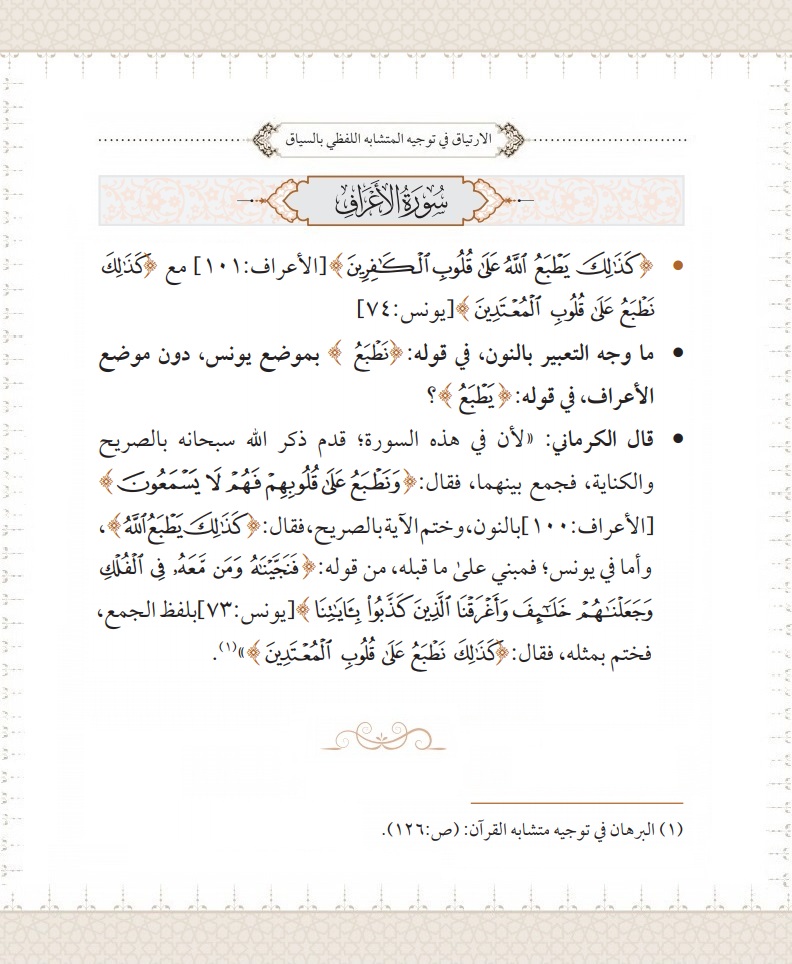 الارتياق في توجيه المتشابه اللفظي بالسياق
سُورَةُ الأَعْرَافِ
• ﴿كَذَٰلِكَ يَطْبَعُ اللَّهُ عَلَىٰ قُلُوبِ الْكَافِرِينَ﴾ [الأعراف:١٠١] مع ﴿كَذَٰلِكَ
نَطْبَعُ عَلَىٰ قُلُوبِ الْمُعْتَدِينَ﴾ [يونس:٧٤]
• ما وجه التعبير بالنون، في قوله: ﴿نَطْبَعُ﴾ بموضع يونس، دون موضع
الأعراف، في قوله: ﴿يَطْبَعُ﴾؟
• قال الكرماني: «لأن في هذه السورة؛ قدم ذكر الله سبحانه بالصريح
والكناية، فجمع بينهما، فقال: ﴿وَنَطْبَعُ عَلَىٰ قُلُوبِهِمْ فَهُمْ لَا يَسْمَعُونَ﴾
[الأعراف:١٠٠] بالنون، وختم الآية بالصريح، فقال: ﴿كَذَٰلِكَ يَطْبَعُ اللَّهُ﴾،
وأما في يونس؛ فمبني علىٰ ما قبله، من قوله: ﴿فَنَجَّيْنَٰهُ وَمَن مَّعَهُۥ فِى الْفُلْكِ
وَجَعَلْنَٰهُمْ خَلَٰٓئِفَ وَأَغْرَقْنَا الَّذِينَ كَذَّبُوا۟ بِـَٔايَٰتِنَا﴾ [يونس:٧٣] بلفظ الجمع،
فختم بمثله، فقال: ﴿كَذَٰلِكَ نَطْبَعُ عَلَىٰ قُلُوبِ الْمُعْتَدِينَ﴾»(١).
(١) البرهان في توجيه متشابه القرآن: (ص:١٢٦).